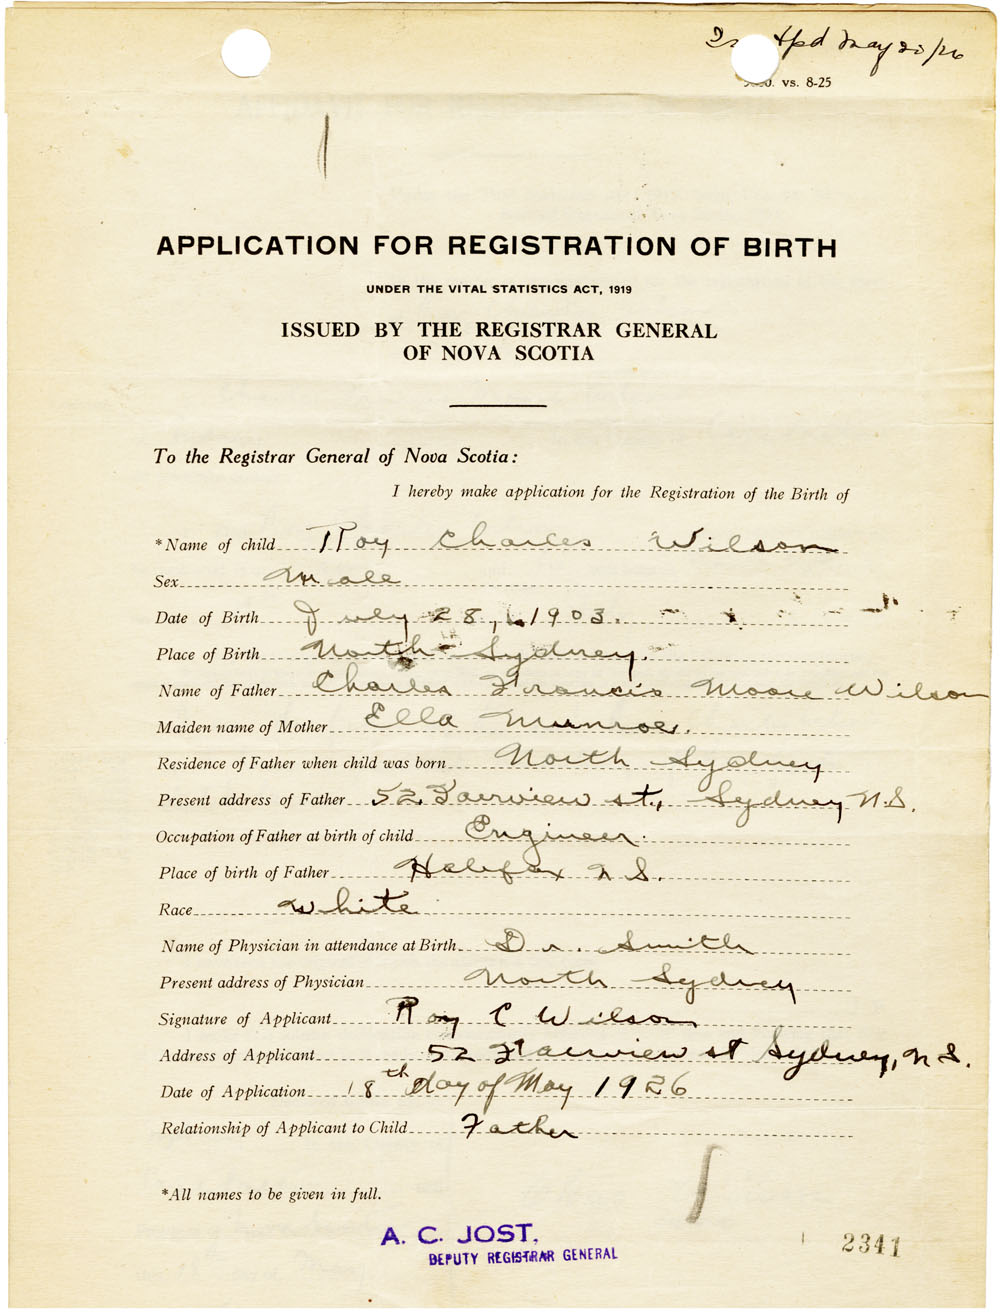 Hpd May 20/26
vs. 8-25
APPLICATION FOR REGISTRATION OF BIRTH
UNDER THE VITAL STATISTICS ACT, 1919
ISSUED BY THE REGISTRAR GENERAL
OF NOVA SCOTIA
To the Registrar General of Nova Scotia:
I hereby make application for the Registration of the Birth of
*Name of child Roy Charles Wilson
Sex Male
Date of Birth July 28, 1903.
Place of Birth North Sydney.
Name of Father Charles Francis Moore Wilson
Maiden name of Mother Ella Munroe.
Residence of Father when child was born North Sydney
Present address of Father 52 Fairview st., Sydney N.S.
Occupation of Father at birth of child Engineer.
Place of birth of Father Halifax N.S.
Race White
Name of Physician in attendance at Birth Dr. Smith
Present address of Physician North Sydney
Signature of Applicant Roy C Wilson
Address of Applicant 52 Fairview st Sydney, N.S.
Date of Application 18th day of May 1926
Relationship of Applicant to Child Father
*All names to be given in full.
A. C. JOST,
DEPUTY REGISTRAR GENERAL
2341